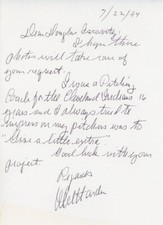 7/22/94
I hope these
photos will take care of
your request.
I was a Pitching
Coach for the Cleveland Indians 16
years and I always tried to
impress on my pitchers was to
"Give a little extra"
Good luck with your
project
Regards
Mel Harder